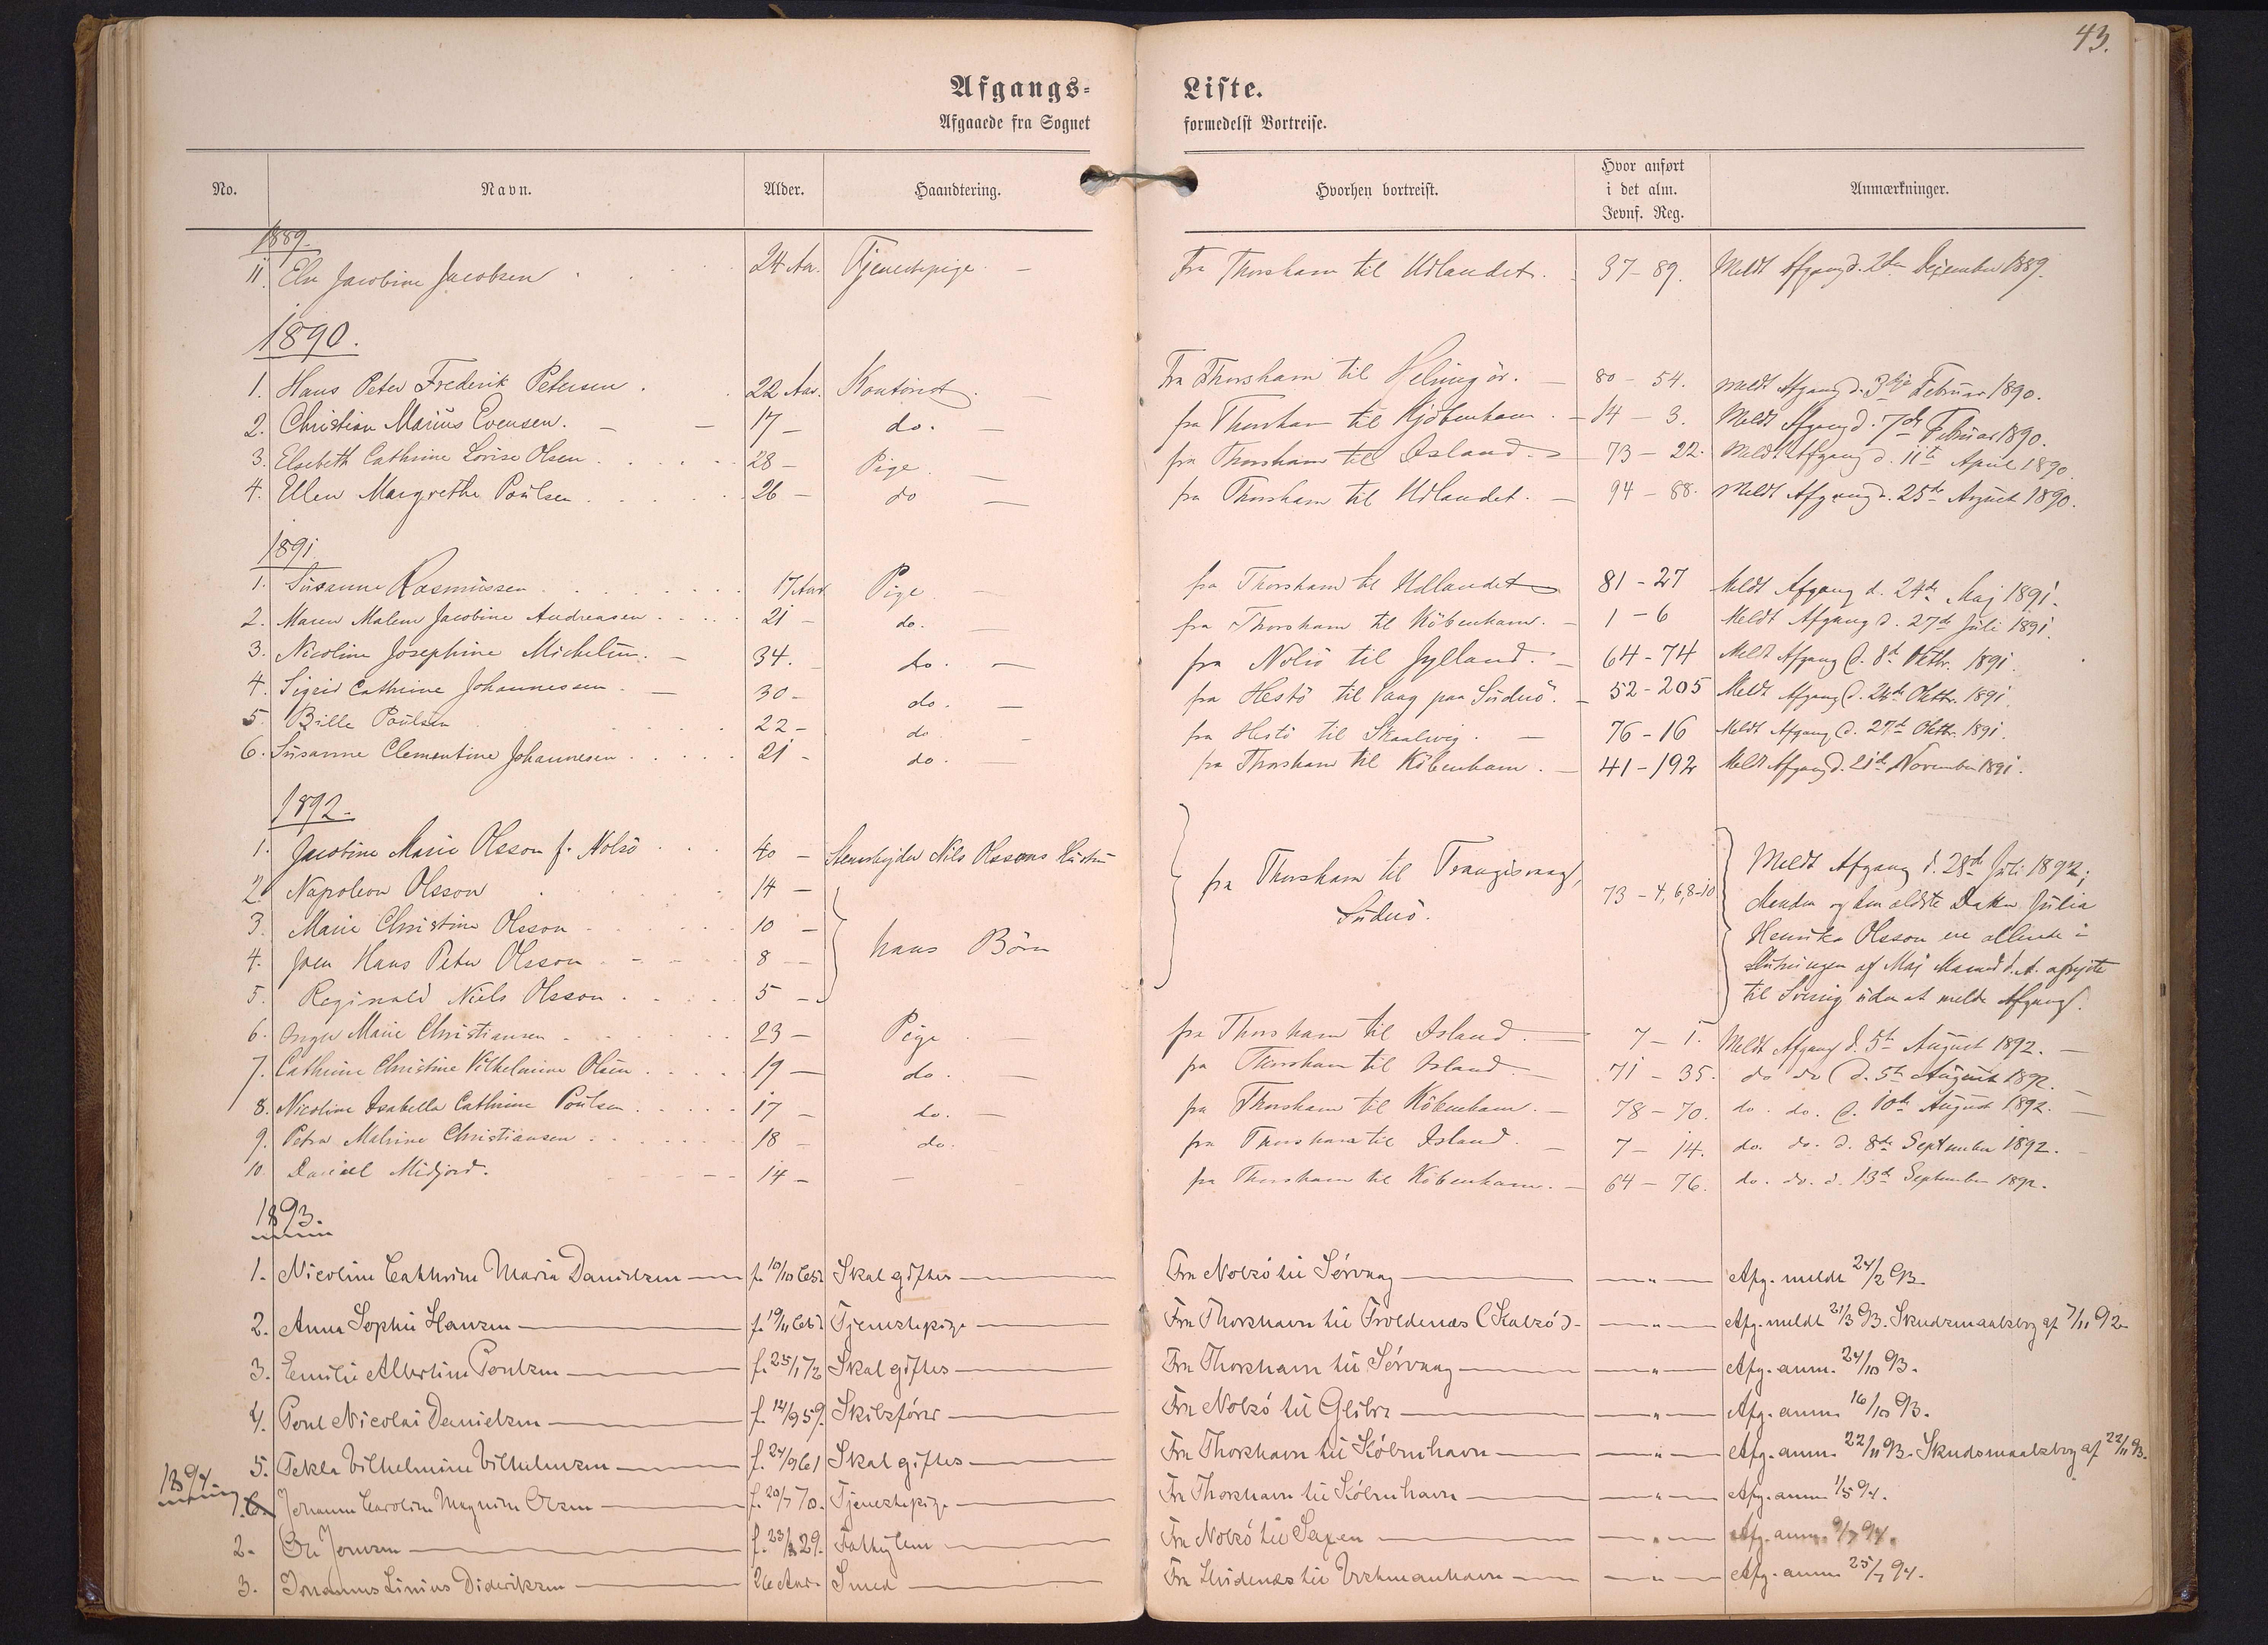 43.
Afgangs= Liste.
Afgaaede fra Sognet formedelst Bortreise.
No. Navn. Alder. Haandtering. Hvorhen bortreist. Hvor anført i det alm. Jevnf. Reg. Anmærkninger.
1889.
11. Else Jacobine Jacobsen 24 Aar. Tjenestepige. Fra Thorshavn til Udlandet. 37-89. Meldt Afgang d. 2den Dezember 1889.
1890.
1. Hans Peter Frederik Petersen. 22 Aar. Kontorist Fra Thorshavn til Helsingör. 80-54. Meldt Afgang d. 3die Februar 1890.
2. Christian Marius Evensen. 17 - do. fra Thorshavn til Kjöbenhavn. 14-3. Meldt Afgang d. 7de Februar 1890.
3. Elsebeth Cathrine Lovise Olsen 28 - Pige fra Thorshavn til Island. 73-22. Meldt Afgang d. 11te April 1890
4. Ellen Margrethe Poulsen 26 - do fra Thorshavn til Udlandet. 94-88. Meldt Afgang d. 25de August 1890.
1891
1. Susanne Rasmussen 17 Aar Pige fra Thorshavn til Udlandet 81-27 Meldt Afgang d. 24de Maj 1891.
2. Maren Malene Jacobine Andreasen 21 - do. fra Thorshavn til Köbenhavn. 1-6 Meldt Afgang d. 27de Juli 1891.
3. Nicoline Josephine Michelsen. 34. do. fra Nolsö til Jylland. 64-74 Meldt Afgang d. 8de Oktbr. 1891.
4. Sigrid Cathrine Johannessen 30 - do. fra Hestö til Vaag paa Suderö. 52-205 Meldt Afgang d. 24de Oktbr. 1891.
5. Bille Poulsen 22 - do fra Hestö til Skaalevig. 76-16 Meldt Afgang d. 27de Oktbr. 1891.
6. Susanne Clementine Johannesen 21 - do. fra Thorshavn til Köbenhavn. 41-192 Meldt Afgang d. 21de November 1891.
1892.
1. Jacobine Marie Olsson f. Nolsö 40 - Stenarbejder Nils Olssons Hustru
2. Napoleon Olsson 14 -
3. Marie Christine Olsson 10 -
4. Joen Hans Peter Olsson 8 -
5. Reginald Niels Olsson. 5 -
hans Börn
fra Thorshavn til Trangisvaag, Suderö. 73-4,6,8-10
Meldt Afgang d. 28de Juli 1892;
Manden og den ældste Datter Julia
Henrika Olsson ere allerede i
Slutningen af Maj Maaned d. A. afrejste
til Sverrig uden at melde Afgang.
6. Inger Marie Christiansen 23 - Pige fra Thorshavn til Island. 7-1. Meldt Afgang d. 5te August 1892.
7. Cathrine Christine Vilhelmine Olsen 19 - do. fra Thorshavn til Island. 71-35. do do d. 5te August 1892.
8. Nicoline Isabella Cathrine Poulsen 17 - do. fra Thorshavn til Köbenhavn. 78-70. do. do. d. 10de August 1892.
9. Petra Malvine Christiansen 18 - do. fra Thorshavn til Island. 7-14. do. do. d. 8de September 1892.
10. Daniel Midjord. 14 - fra Thorshavn til Köbenhavn. 64-76. do. do. d. 13de September 1892.
1893.
1. Nicoline Cathrine Maria Danielsen f. 10/10 Skal giftes Fra Nolsö til Sörvaag — " — Afg. meldt 24/2 93.
2. Anna Sophie Hansen f. 19/11 Tjenestepige Fra Thorshavn til Troldenæs (Kalsö) — " — Afg. meldt 21/3 93. Skudsmaalsbog af 7/11 92
3. Emilie Albertine Poulsen f. 25/1 72 Skal giftes Fra Thorshavn til Sörvaag — " — Afg. anm. 24/10 93.
4. Poul Nicolai Danielsen f. 14/9 59. Skibsförer Fra Nolsö til Glibre — " — Afg. anm. 16/10 93.
5. Tekla Vilhelmine Vilhelmsen f. 24/9 61 Skal giftes Fra Thorshavn til Köbenhavn — " — Afg. anm. 22/11 93. Skudsmaalsbog af 22/11 93.
1894.
1. Johanne Caroline Magnine Olsen f. 20/7 70. Tjenestepige Fra Thorshavn til Köbenhavn — " — Afg. anm. 1/5 94.
2. Ole Joensen 29. Fattiglem Fra Nolsö til Saxen — " — Afg. anm. 9/7 94.
3. Johannes Linius Dideriksen 26 Aar. Smed Fra Hvidenæs til Vestmanhavn — " — Afg. anm. 25/7 94.